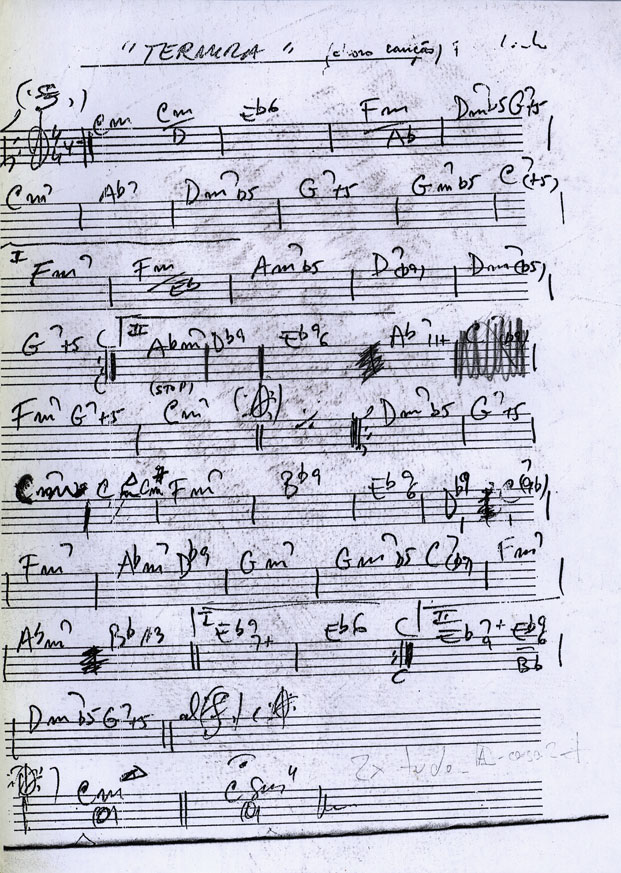 "TERNURA" (choro canção)
Cm Cm/D Eb6 Fm/Ab Dm7b5 G7+5
Cm7 Ab7 Dm7b5 G7+5 Gm7b5 C7(+5)
I Fm7 Fm/Eb Am7b5 D7(b9) Dm7(b5)
G7+5 C II Abm7 Db9 Eb6/9 Ab7/11+
C (STOP)
Fm7 G7+5 Cm7 Dm7b5 G7+5
Fm7 Bb9 Eb6/9 Db9
Fm7 Abm7 Db9 Gm7 Gm7b5 C7(b9) Fm7
Abm7 Bb/13 I Eb9/7+ Eb6 C II Eb7+/9 Eb9/6/Bb
C
Dm7b5 G7+5 al
2x tudo
Cm C Sus4